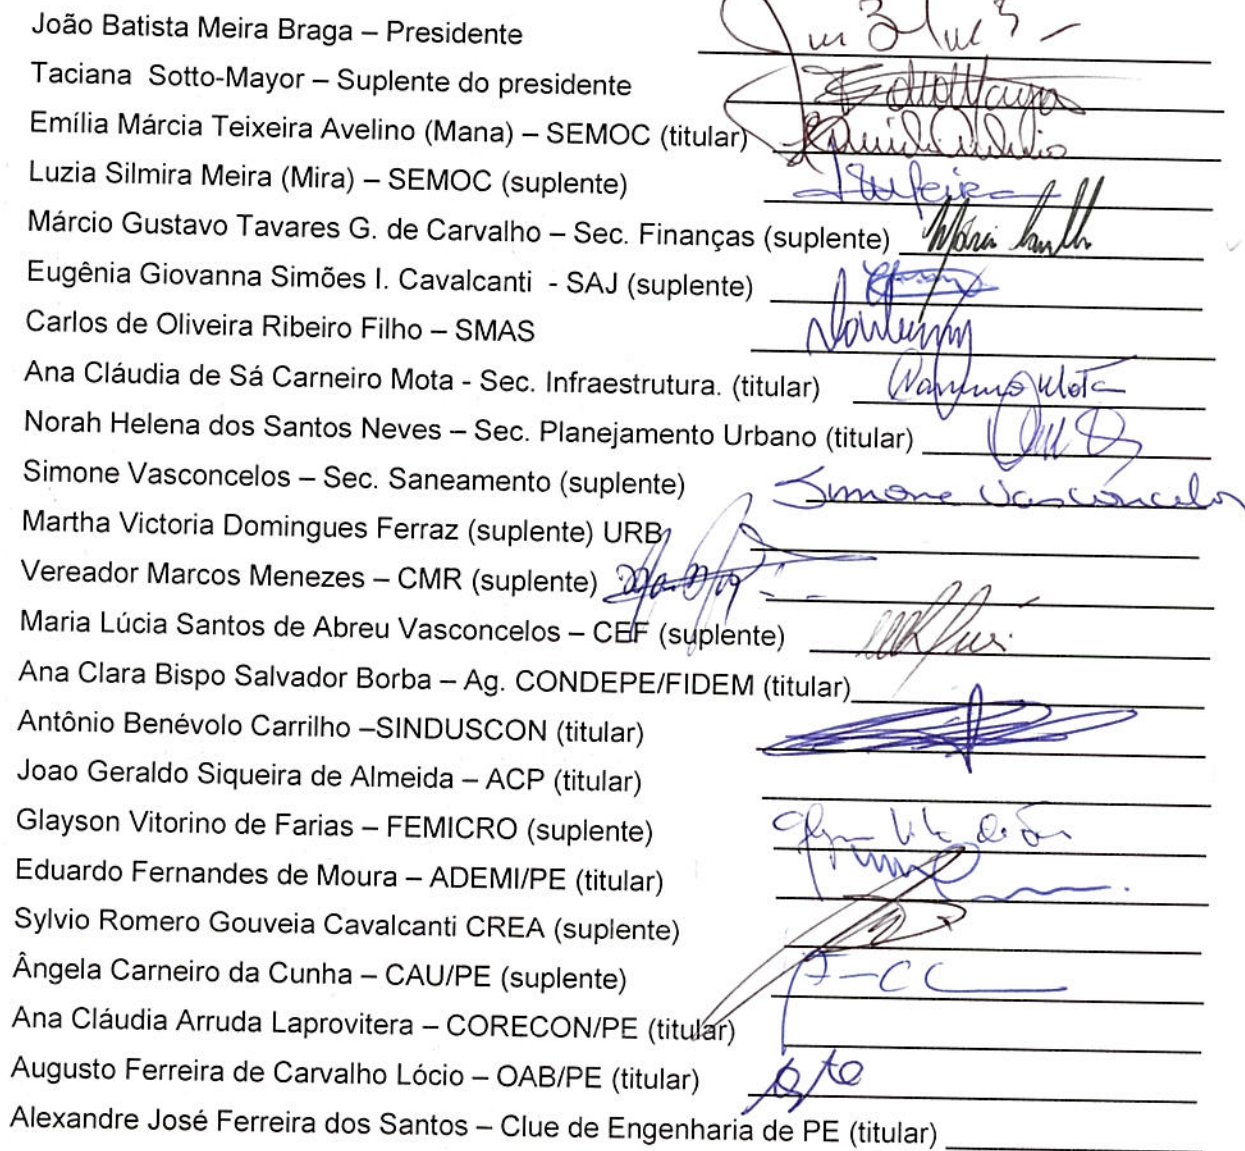 João Batista Meira Braga – Presidente
Taciana Sotto-Mayor – Suplente do presidente
Emília Márcia Teixeira Avelino (Mana) – SEMOC (titular)
Luzia Silmira Meira (Mira) – SEMOC (suplente)
Márcio Gustavo Tavares G. de Carvalho – Sec. Finanças (suplente)
Eugênia Giovanna Simões I. Cavalcanti - SAJ (suplente)
Carlos de Oliveira Ribeiro Filho – SMAS
Ana Cláudia de Sá Carneiro Mota - Sec. Infraestrutura. (titular)
Norah Helena dos Santos Neves – Sec. Planejamento Urbano (titular)
Simone Vasconcelos – Sec. Saneamento (suplente) Simone Vasconcelos
Martha Victoria Domingues Ferraz (suplente) URB
Vereador Marcos Menezes – CMR (suplente)
Maria Lúcia Santos de Abreu Vasconcelos – CEF (suplente)
Ana Clara Bispo Salvador Borba – Ag. CONDEPE/FIDEM (titular)
Antônio Benévolo Carrilho –SINDUSCON (titular)
Joao Geraldo Siqueira de Almeida – ACP (titular)
Glayson Vitorino de Farias – FEMICRO (suplente)
Eduardo Fernandes de Moura – ADEMI/PE (titular)
Sylvio Romero Gouveia Cavalcanti CREA (suplente)
Ângela Carneiro da Cunha – CAU/PE (suplente)
Ana Cláudia Arruda Laprovitera – CORECON/PE (titular)
Augusto Ferreira de Carvalho Lócio – OAB/PE (titular)
Alexandre José Ferreira dos Santos – Clue de Engenharia de PE (titular)